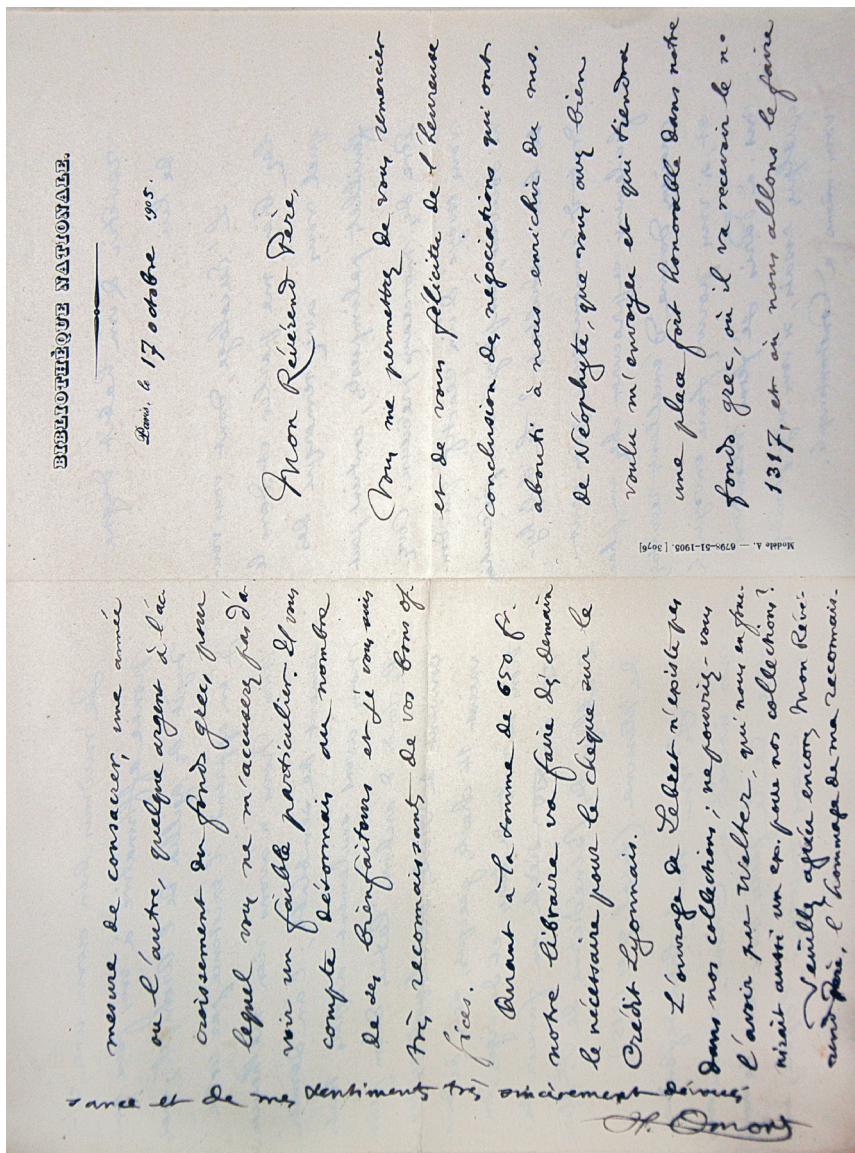 BIBLIOTHÈQUE NATIONALE.
Paris, le 17 octobre 1905.
Mon Révérend Père,
Vous me permettrez de vous remercier
et de vous féliciter de l'heureuse
conclusion des négociations qui ont
abouti à nous enrichir du ms.
de Néophyte, que vous avez bien
voulu m'envoyer et qui tiendra
une place fort honorable dans notre
fonds grec, où il va recevoir le no
1317, et où nous allons le faire
Modèle A. — 6798-51-1905. [3076]
mesure de consacrer, une année
ou l'autre, quelque argent à l'ac-
croissement du fonds grec, pour
lequel vous ne m'accuserez pas d'a-
voir un faible particulier. Il vous
compte désormais au nombre
de ses bienfaiteurs et je vous suis
très reconnaissant de vos bons of-
fices.
Quant à la somme de 650 fr.
notre libraire va faire dès demain
le nécessaire pour le chèque sur le
Crédit Lyonnais.
L'ouvrage de Lebret n'existe pas
dans nos collections; ne pourriez-vous
l'avoir par Welter, qui nous en four-
nirait aussi un ex. pour nos collections?
Veuillez agréer encore, Mon Révé-
rend Père, l'hommage de ma reconnais-
sance et de mes sentiments très sincèrement dévoués
H. Omont